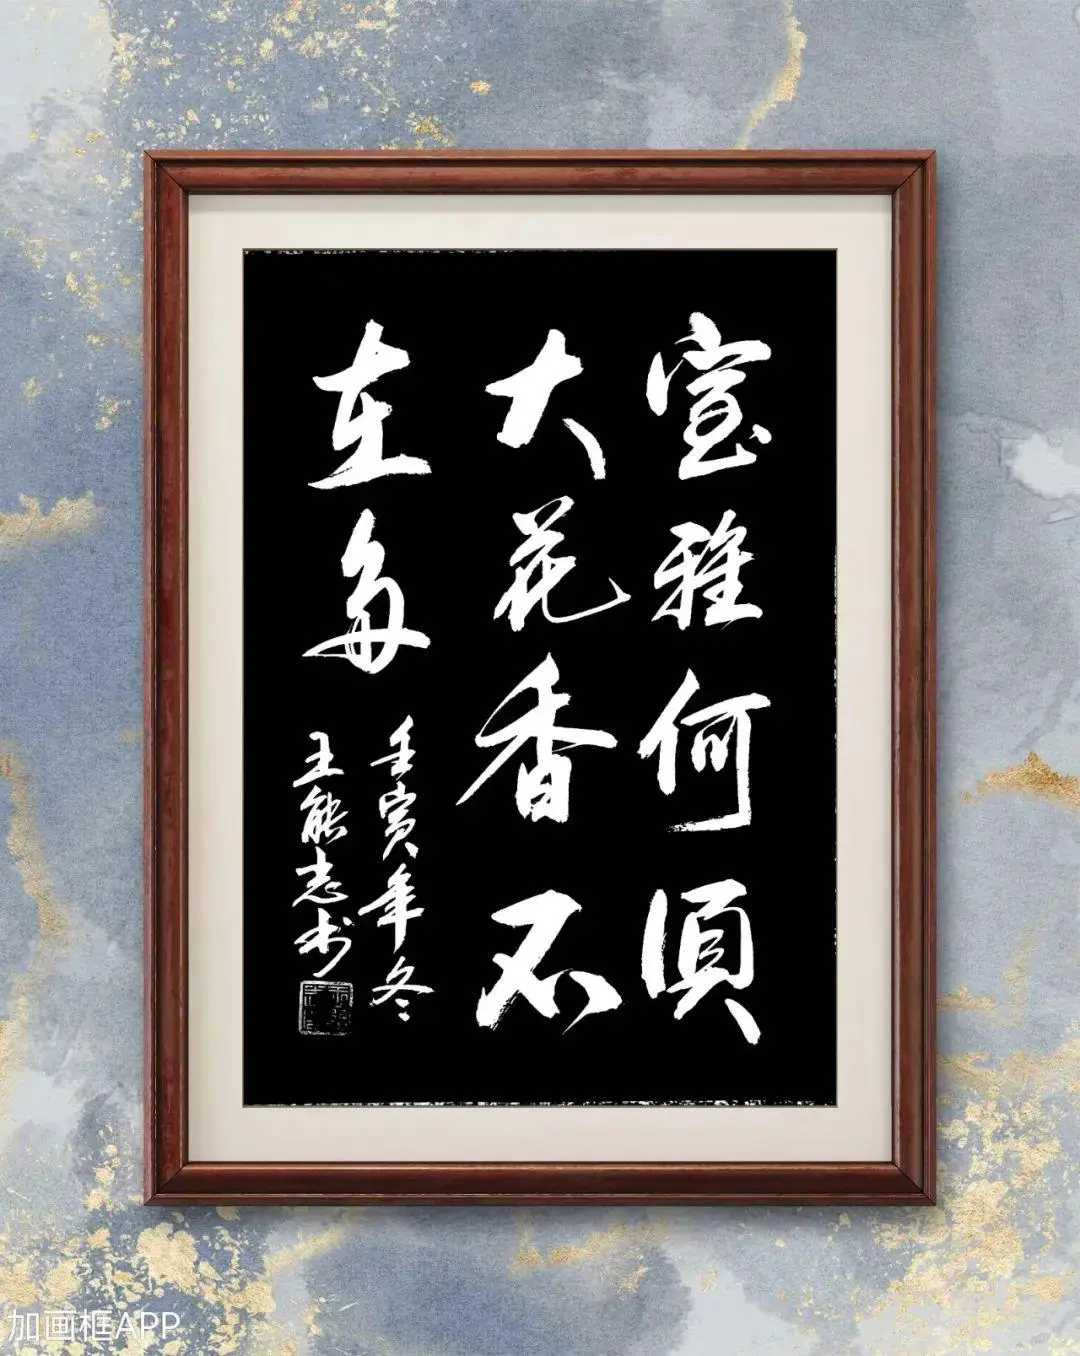 室雅何須
大花香不
在多
壬寅年冬
王能志书
加画框APP